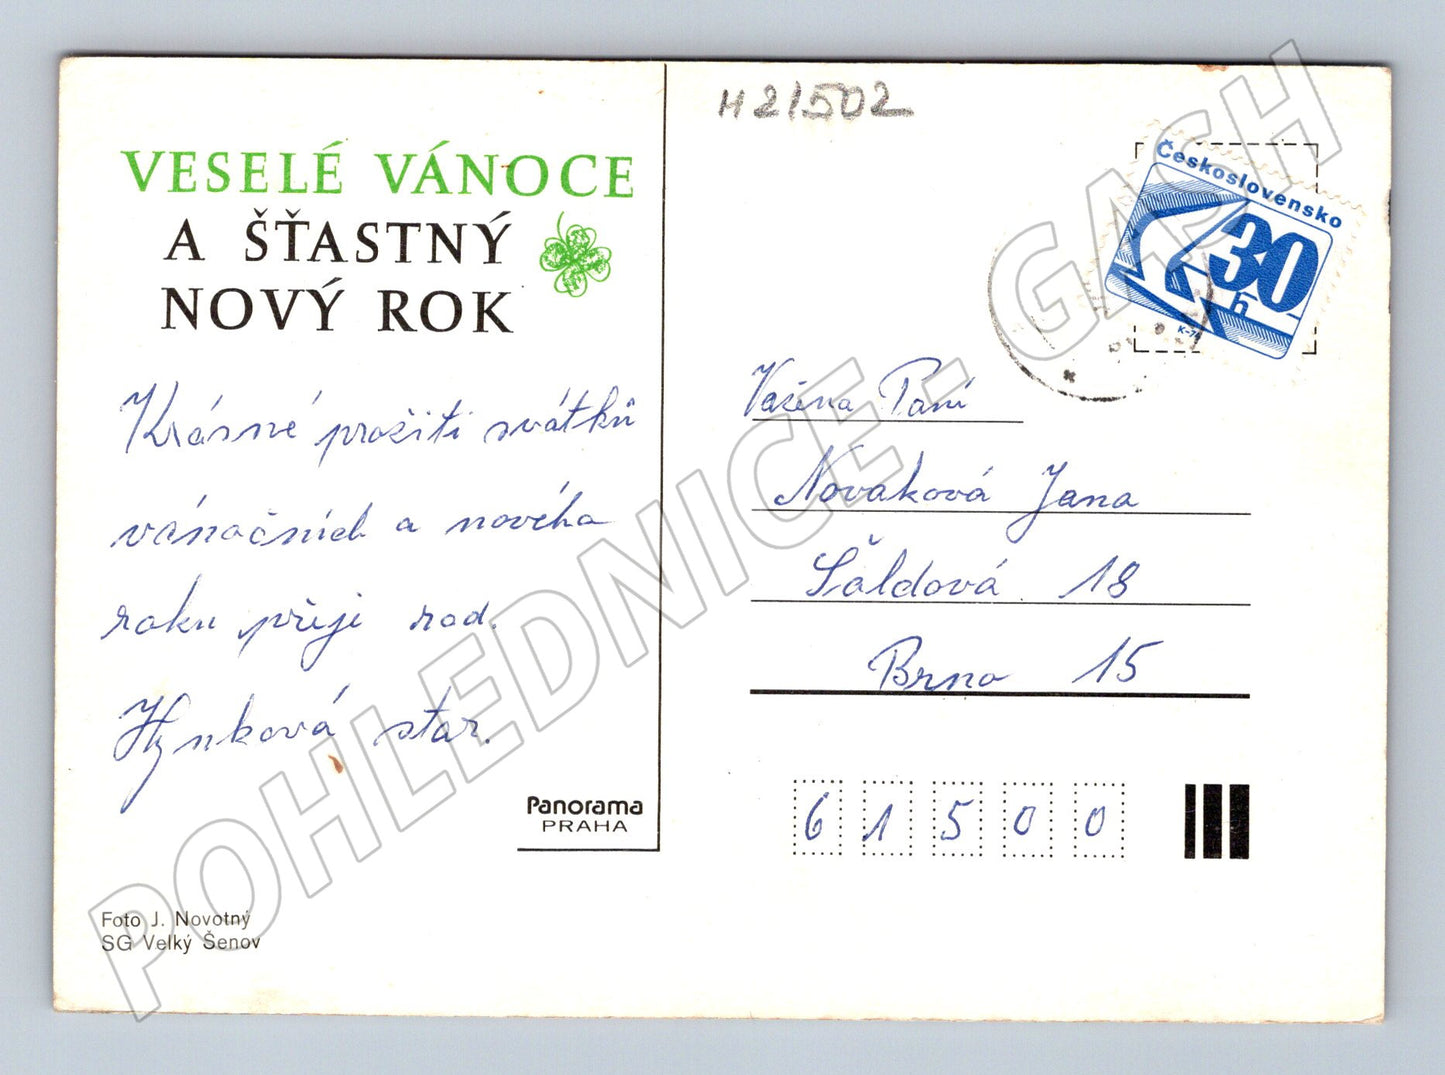 VESELÉ VÁNOCE
A ŠŤASTNÝ
NOVÝ ROK
Krásné prožití svátků
vánočních a nového
roku přeji rod.
Hynková star.
Panorama
PRAHA
Foto J. Novotný
SG Velký Šenov
H21502
Československo
30
h
K-74
Vážena Paní
Nováková Jana
Šaldová 18
Brno 15
6 1 5 0 0
POHLEDNICE - GASH